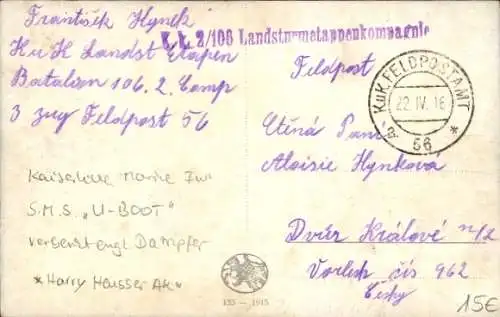 František Hynek
K. k. 2/106 Landsturmetappenkompagnie
K u K Landst Etapen
Batalion 106. 2. Comp
3 zug Feldpost 56
Feldpost
K.u.K. FELDPOSTAMT
22. IV. 16
56
Ctěná Paní
Aloisie Hynková
Dvůr Králové n/L
čís 962
Česky
Kaiserliche Marine
S.M.S. „U-BOOT"
versenkt engl. Dampfer
*Harry Hausser AK*
135 — 1915
15€